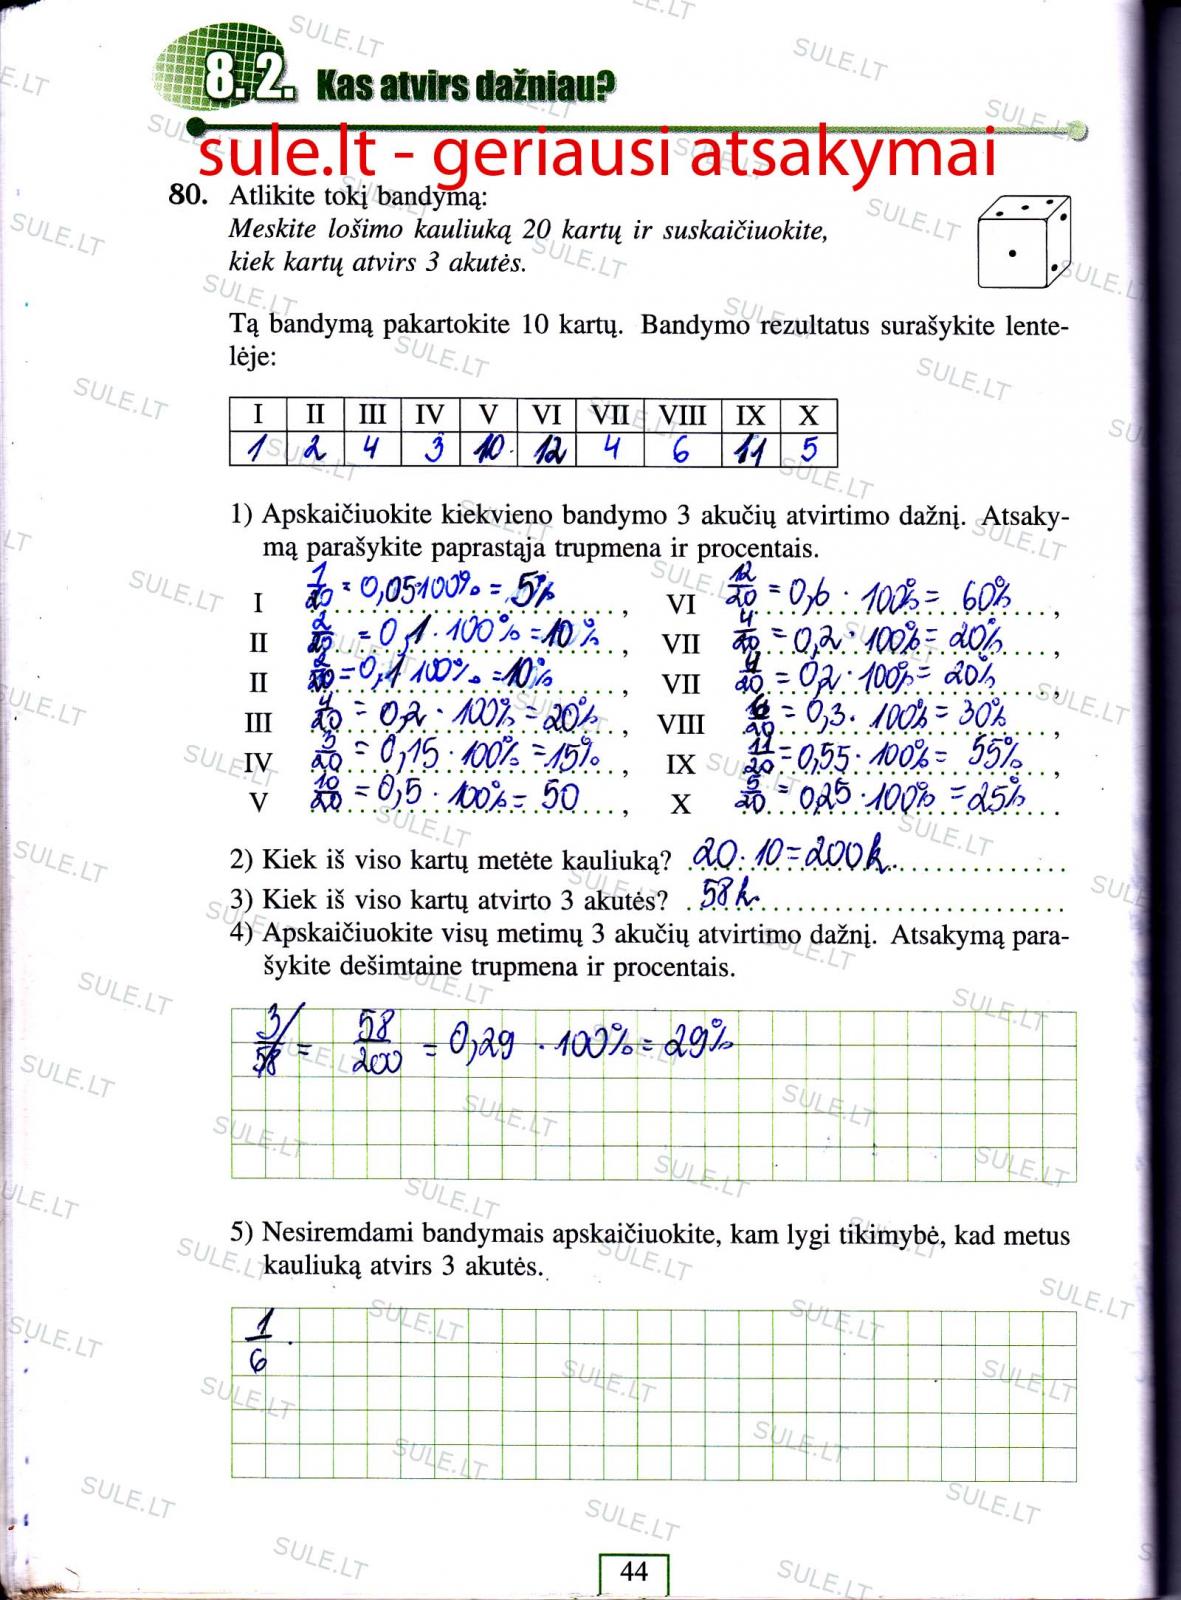 8.2. Kas atvirs dažniau?
sule.lt - geriausi atsakymai
80. Atlikite tokį bandymą:
Meskite lošimo kauliuką 20 kartų ir suskaičiuokite,
kiek kartų atvirs 3 akutės.
Tą bandymą pakartokite 10 kartų. Bandymo rezultatus surašykite lente-
lėje:
I II III IV V VI VII VIII IX X
1 2 4 3 10 12 4 6 11 5
1) Apskaičiuokite kiekvieno bandymo 3 akučių atvirtimo dažnį. Atsaky-
mą parašykite paprastąja trupmena ir procentais.
I 1/20 = 0,05·100% = 5%, VI 12/20 = 0,6 · 100% = 60%,
II 2/20 = 0,1 · 100% = 10%, VII 4/20 = 0,2 · 100% = 20%,
II 2/20 = 0,1 100% = 10%, VII 4/20 = 0,2 · 100% = 20%,
III 4/20 = 0,2 · 100% = 20%, VIII 6/20 = 0,3 · 100% = 30%,
IV 3/20 = 0,15 · 100% = 15%, IX 11/20 = 0,55 · 100% = 55%,
V 10/20 = 0,5 · 100% = 50, X 5/20 = 0,25 · 100% = 25%.
2) Kiek iš viso kartų metėte kauliuką? 20 · 10 = 200 k.
3) Kiek iš viso kartų atvirto 3 akutės? 58 k.
4) Apskaičiuokite visų metimų 3 akučių atvirtimo dažnį. Atsakymą para-
šykite dešimtaine trupmena ir procentais.
3/58 = 58/200 = 0,29 · 100% = 29%
5) Nesiremdami bandymais apskaičiuokite, kam lygi tikimybė, kad metus
kauliuką atvirs 3 akutės.
1/6.
44
SULE.LT